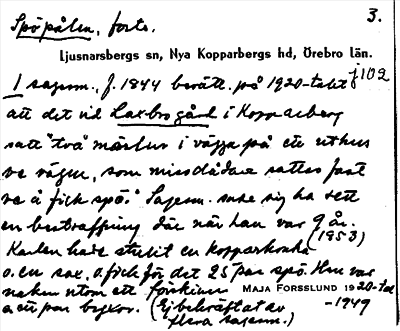 Spöpålen, forts. 3.
Ljusnarsbergs sn, Nya Kopparbergs hd, Örebro län.
1 sagesm., f. 1844 berätt. på 1920-talet
att det vid Laxbro gård i Kopparberg
satt "två märlur i vägga på ett uthus
ve vägen, som missdådare sattes fast
ve å fick spö." Sagesm. sade sig ha sett
en bestraffning där när han var 9 år.
Karlen hade stulit en kopparkaka (1853)
o. en sax. o. fick för det 25 par spö. Han var
naken utom ett förskinn MAJA FORSSLUND 1920-tal
a ett par byxor. (Ej bekräftat av -1949
flera sagesm.)